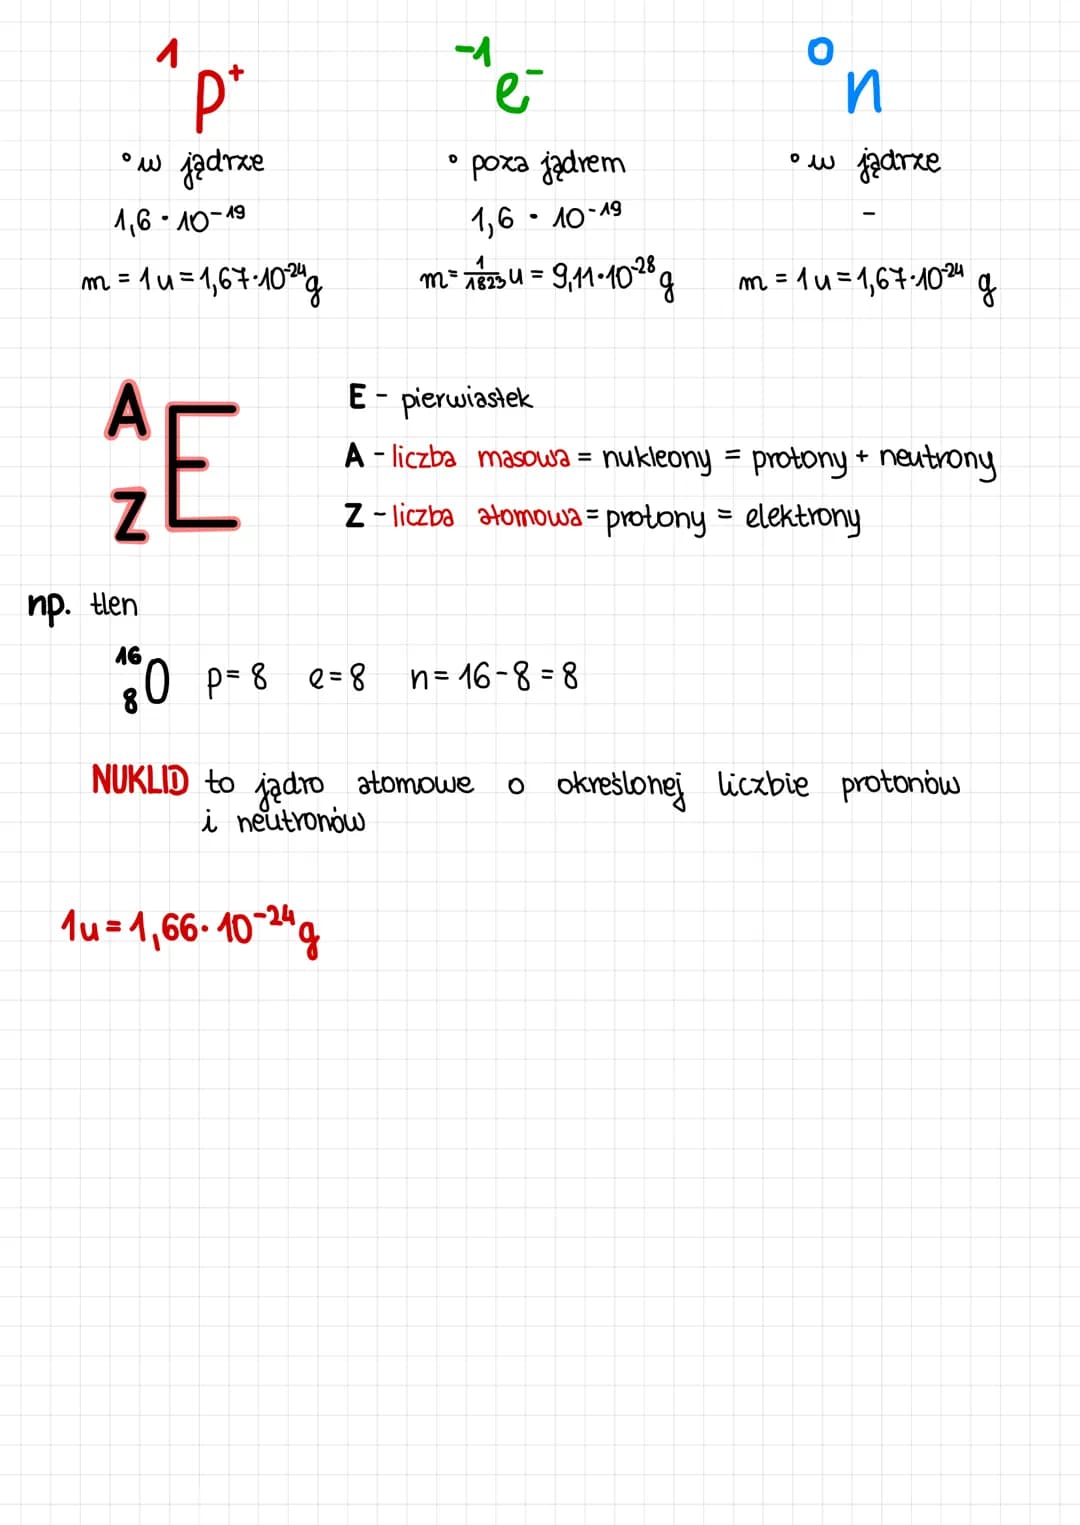 1p⁺ -1e⁻ 0n
° w jądrze ° poza jądrem ° w jądrze
1,6 · 10⁻¹⁹ 1,6 · 10⁻¹⁹ -
m = 1u = 1,67·10⁻²⁴g m = 1/1823 u = 9,11·10⁻²⁸g m = 1u = 1,67·10⁻²⁴ g
A
Z E
E - pierwiastek
A - liczba masowa = nukleony = protony + neutrony
Z - liczba atomowa = protony = elektrony
np. tlen
¹⁶₈O p = 8 e = 8 n = 16 - 8 = 8
NUKLID to jądro atomowe o określonej liczbie protonów
i neutronów
1u = 1,66·10⁻²⁴g